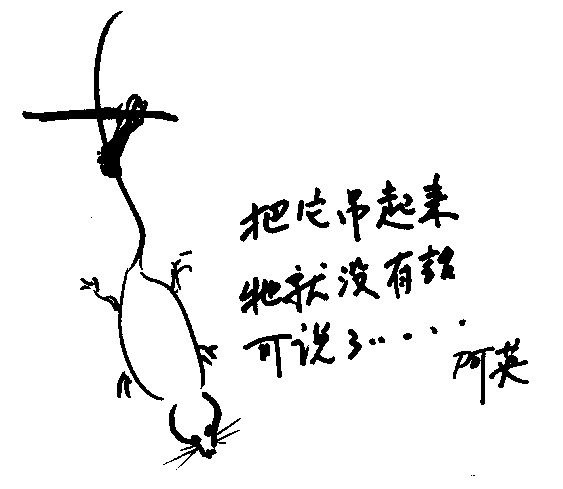 把它吊起来
牠就没有話
可说了·····
阿英